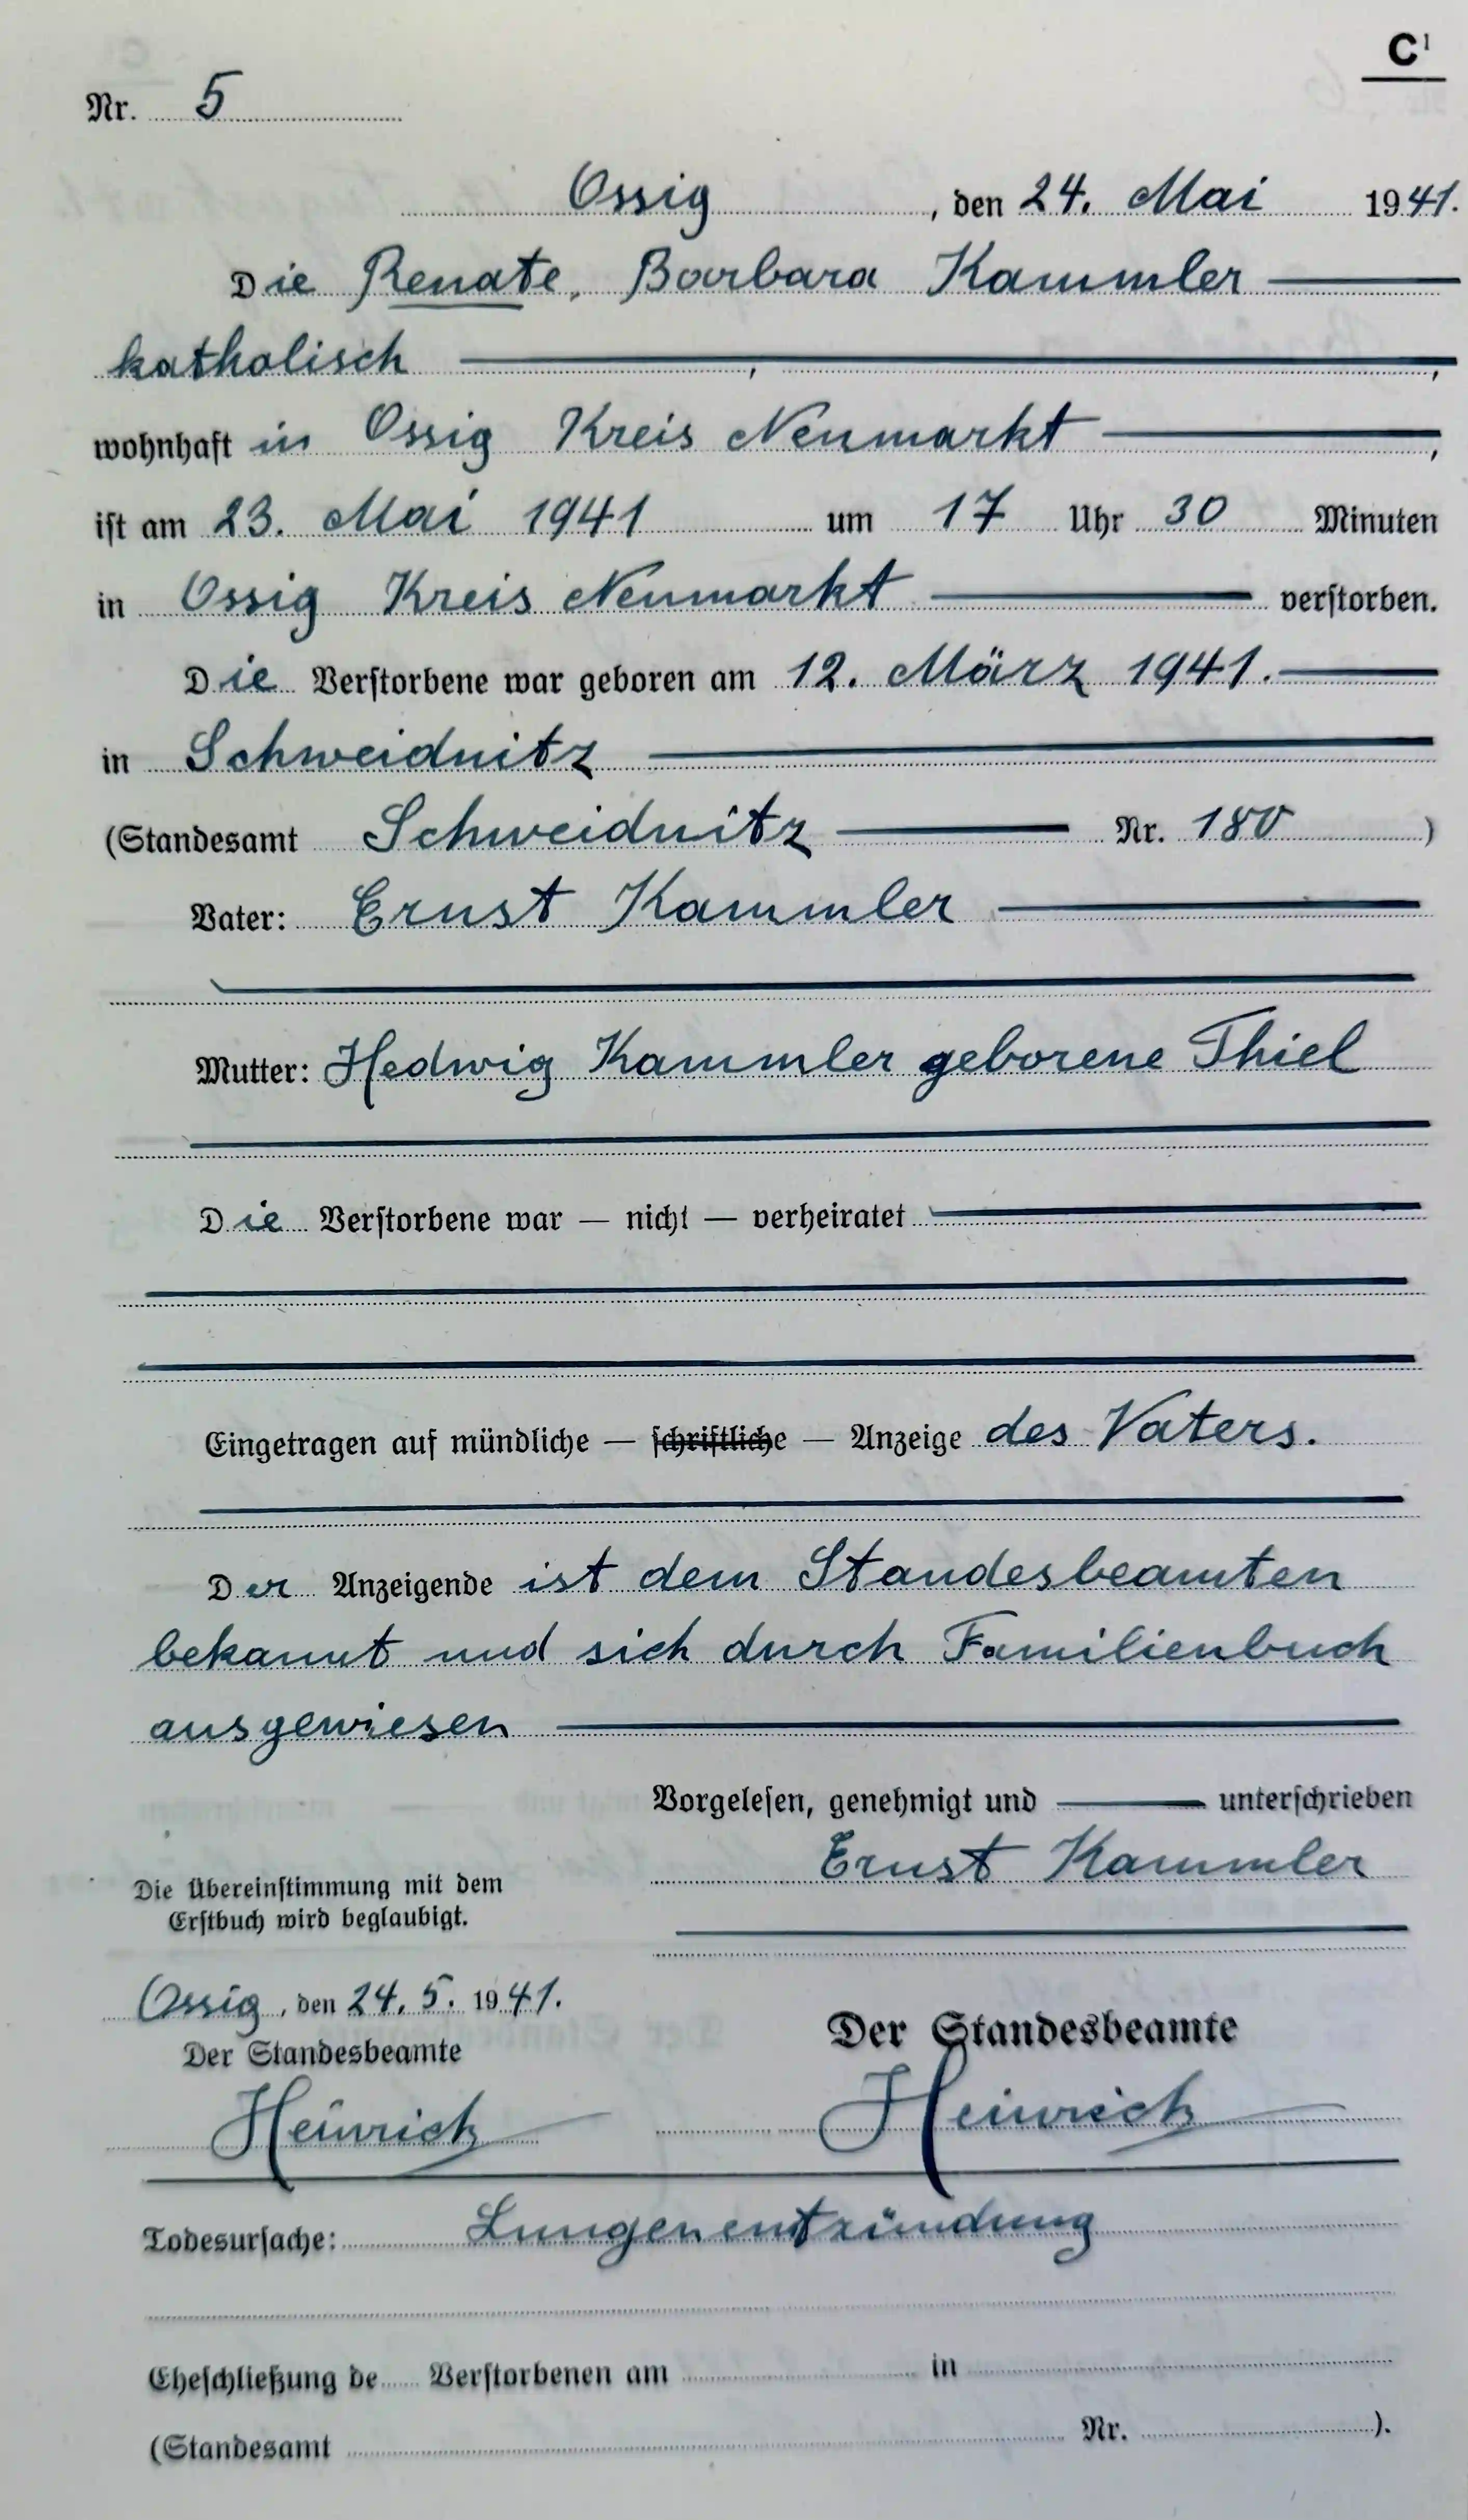 C¹
Nr. 5
Ossig, den 24. Mai 1941.
Die Renate, Barbara Kammler
katholisch , ,
wohnhaft in Ossig Kreis Neumarkt ,
ist am 23. Mai 1941 um 17 Uhr 30 Minuten
in Ossig Kreis Neumarkt verstorben.
Die Verstorbene war geboren am 12. März 1941.
in Schweidnitz
(Standesamt Schweidnitz Nr. 180 )
Vater: Ernst Kammler
Mutter: Hedwig Kammler geborene Thiel
Die Verstorbene war — nicht — verheiratet
Eingetragen auf mündliche — schriftliche — Anzeige des Vaters.
Der Anzeigende ist dem Standesbeamten
bekannt und sich durch Familienbuch
ausgewiesen
Vorgelesen, genehmigt und unterschrieben
Ernst Kammler
Die Übereinstimmung mit dem
Erstbuch wird beglaubigt.
Ossig, den 24. 5. 1941.
Der Standesbeamte
Heinrich
Der Standesbeamte
Heinrich
Todesursache: Lungenentzündung
Eheschließung de Verstorbenen am in
(Standesamt Nr. ).